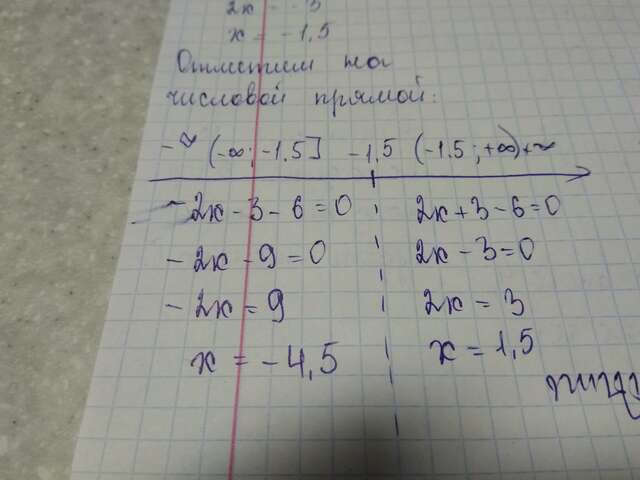 2x = -3
x = -1,5
Отметим на
числовой прямой:
-∞ (-∞; -1,5] -1,5 (-1,5; +∞) +∞
-2x - 3 - 6 = 0 2x + 3 - 6 = 0
-2x - 9 = 0 2x - 3 = 0
-2x = 9 2x = 3
x = -4,5 x = 1,5